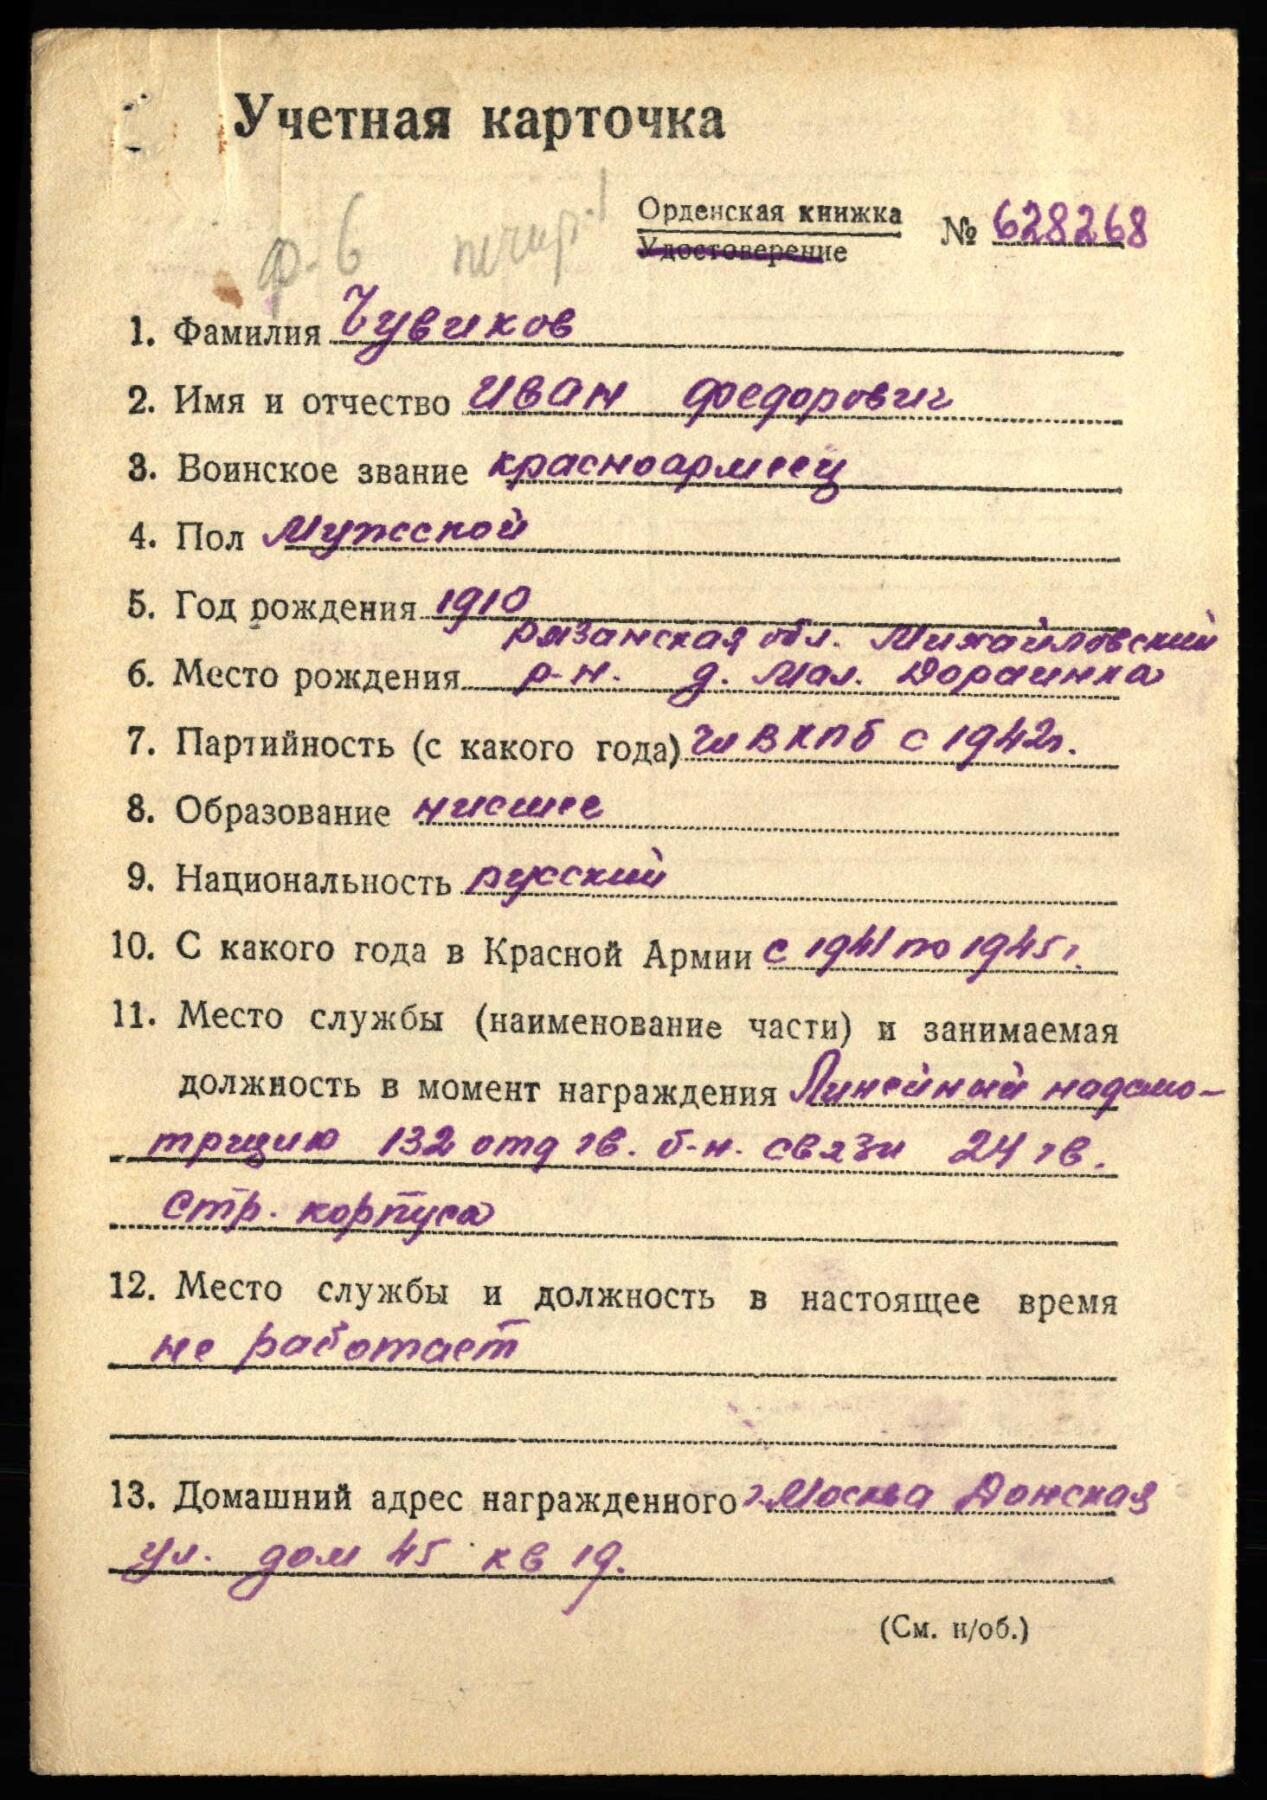 Учетная карточка
ф-6
Орденская книжка
Удостоверение
№ 628268
1. Фамилия Чувиков
2. Имя и отчество Иван Федорович
3. Воинское звание красноармеец
4. Пол Мужской
5. Год рождения 1910
рязанская обл. Михайловский
6. Место рождения р-н. д. Мал. Дорогинка
7. Партийность (с какого года) чл ВКПб с 1942г.
8. Образование нисшее
9. Национальность русский
10. С какого года в Красной Армии с 1941 по 1945г.
11. Место службы (наименование части) и занимаемая
должность в момент награждения Линейный надсмо-
трщик 132 отд гв. б-н. связи 24 гв.
Стр. корпуса
12. Место службы и должность в настоящее время
не работает
13. Домашний адрес награжденного г. Москва Донская
ул. дом 45 кв 19.
(См. н/об.)